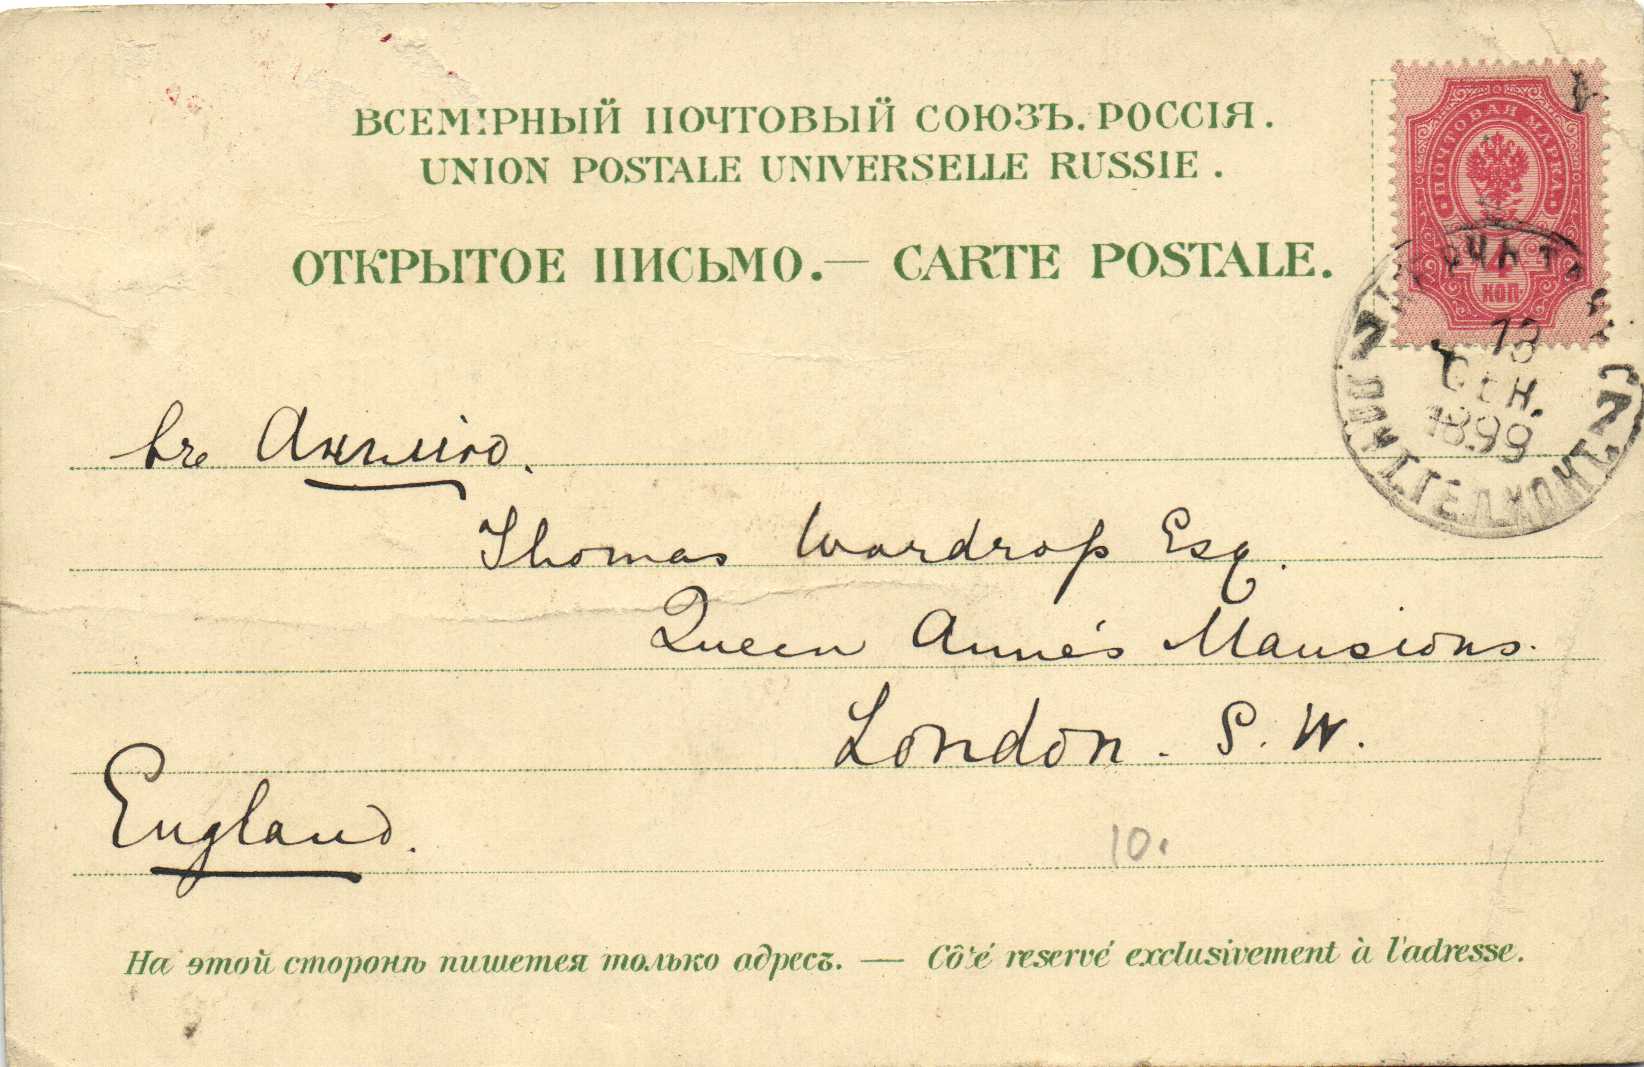 ВСЕМІРНЫЙ ПОЧТОВЫЙ СОЮЗЪ. РОССІЯ.
UNION POSTALE UNIVERSELLE RUSSIE.
ОТКРЫТОЕ ПИСЬМО.— CARTE POSTALE.
ПОЧТОВАЯ МАРКА
4
КОП
13
СЕН.
1899
ПОЧТ. ТЕЛ. КОНТ.
въ Англію.
Thomas Wardrop Esq.
Queen Anne's Mansions.
London. S. W.
England.
10.
На этой сторонѣ пишется только адресъ. — Côté reservé exclusivement à l'adresse.